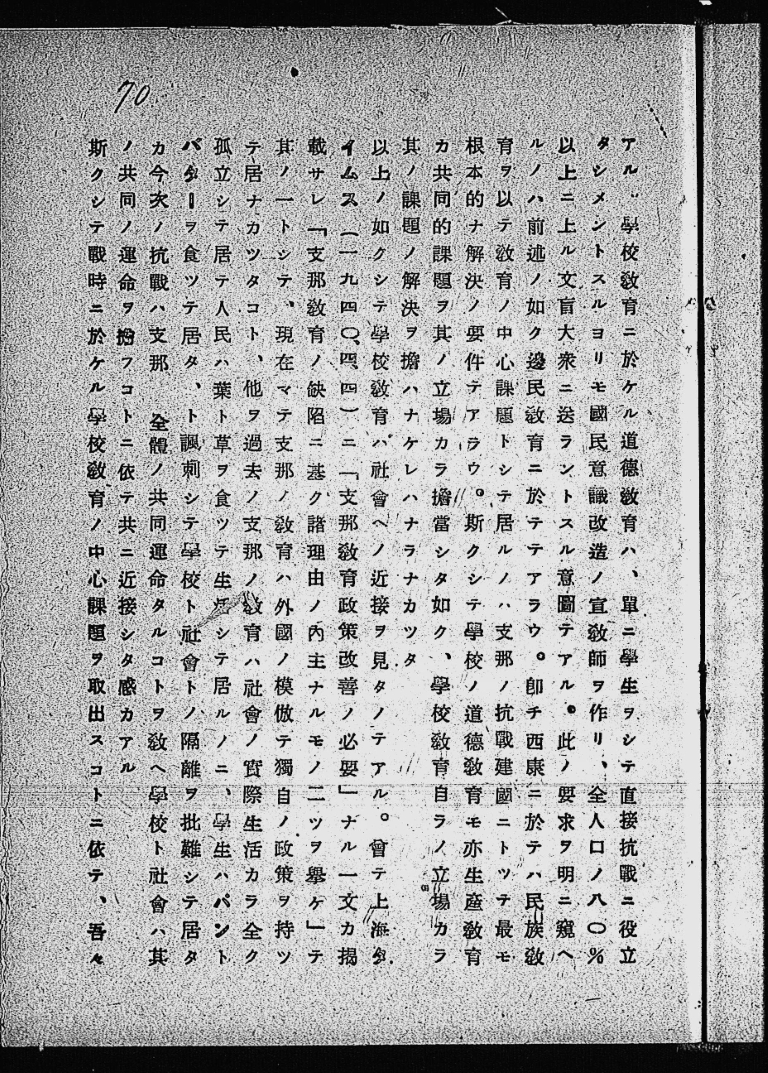 70
アル。學校敎育ニ於ケル道德敎育ハ、單ニ學生ヲシテ直接抗戰ニ役立
タシメントスルヨリモ國民意識改造ノ宣敎師ヲ作リ、全人口ノ八〇%
以上ニ上ル文盲大衆ニ送ラントスル意圖テアル。此ノ要求ヲ明ニ窺ヘ
ルノハ前述ノ如ク邊民敎育ニ於テテアラウ。卽チ西康ニ於テハ民族敎
育ヲ以テ敎育ノ中心課題トシテ居ルノハ支那ノ抗戰建國ニトツテ最モ
根本的ナ解決ノ要件テアラウ。斯クシテ學校ノ道德敎育モ亦生產敎育
カ共同的課題ヲ其ノ立場カラ擔當シタ如ク、學校敎育自ラノ立場カラ
其ノ課題ノ解決ヲ擔ハナケレハナラナカツタ
以上ノ如クシテ學校敎育ハ社會ヘノ近接ヲ見タノテアル。曾テ上海タ
イムス(一九四〇、四、四)ニ「支那敎育政策改善ノ必要」ナル一文カ揭
載サレ「支那敎育ノ缺陷ニ基ク諸理由ノ內主ナルモノ二ツヲ擧ケ」テ
其ノ一トシテ、現在マテ支那ノ敎育ハ外國ノ模倣テ獨自ノ政策ヲ持ツ
テ居ナカツタコト、他ヲ過去ノ支那ノ敎育ハ社會ノ實際生活カラ全ク
孤立シテ居テ人民ハ葉ト草ヲ食ツテ生活シテ居ルノニ、學生ハパント
バターヲ食ツテ居タ、ト諷刺シテ學校ト社會トノ隔離ヲ批難シテ居タ
カ今次ノ抗戰ハ支那 全體ノ共同運命タルコトヲ敎ヘ學校ト社會ハ其
ノ共同ノ運命ヲ擔フコトニ依テ共ニ近接シタ感カアル
斯クシテ戰時ニ於ケル學校敎育ノ中心課題ヲ取出スコトニ依テ、吾々